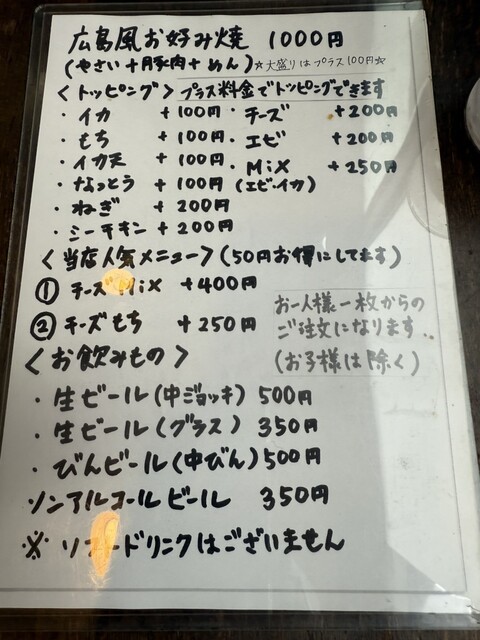 広島風お好み焼 1000円
(やさい+豚肉+めん) ☆大盛りはプラス100円☆
<トッピング> プラス料金でトッピングできます
・イカ +100円 ・チーズ +200円
・もち +100円 ・エビ +200円
・イカ天 +100円 ・MiX +250円
・なっとう +100円 (エビ・イカ)
・ねぎ +200円
・シーチキン +200円
<当店人気メニュー> (50円お得にしてます)
① チーズMiX +400円
② チーズもち +250円
お一人様一枚からの
ご注文になります..
(お子様は除く)
<お飲みもの>
・生ビール(中ジョッキ) 500円
・生ビール(グラス) 350円
・びんビール(中びん) 500円
ノンアルコールビール 350円
※ ソフトドリンクはございません